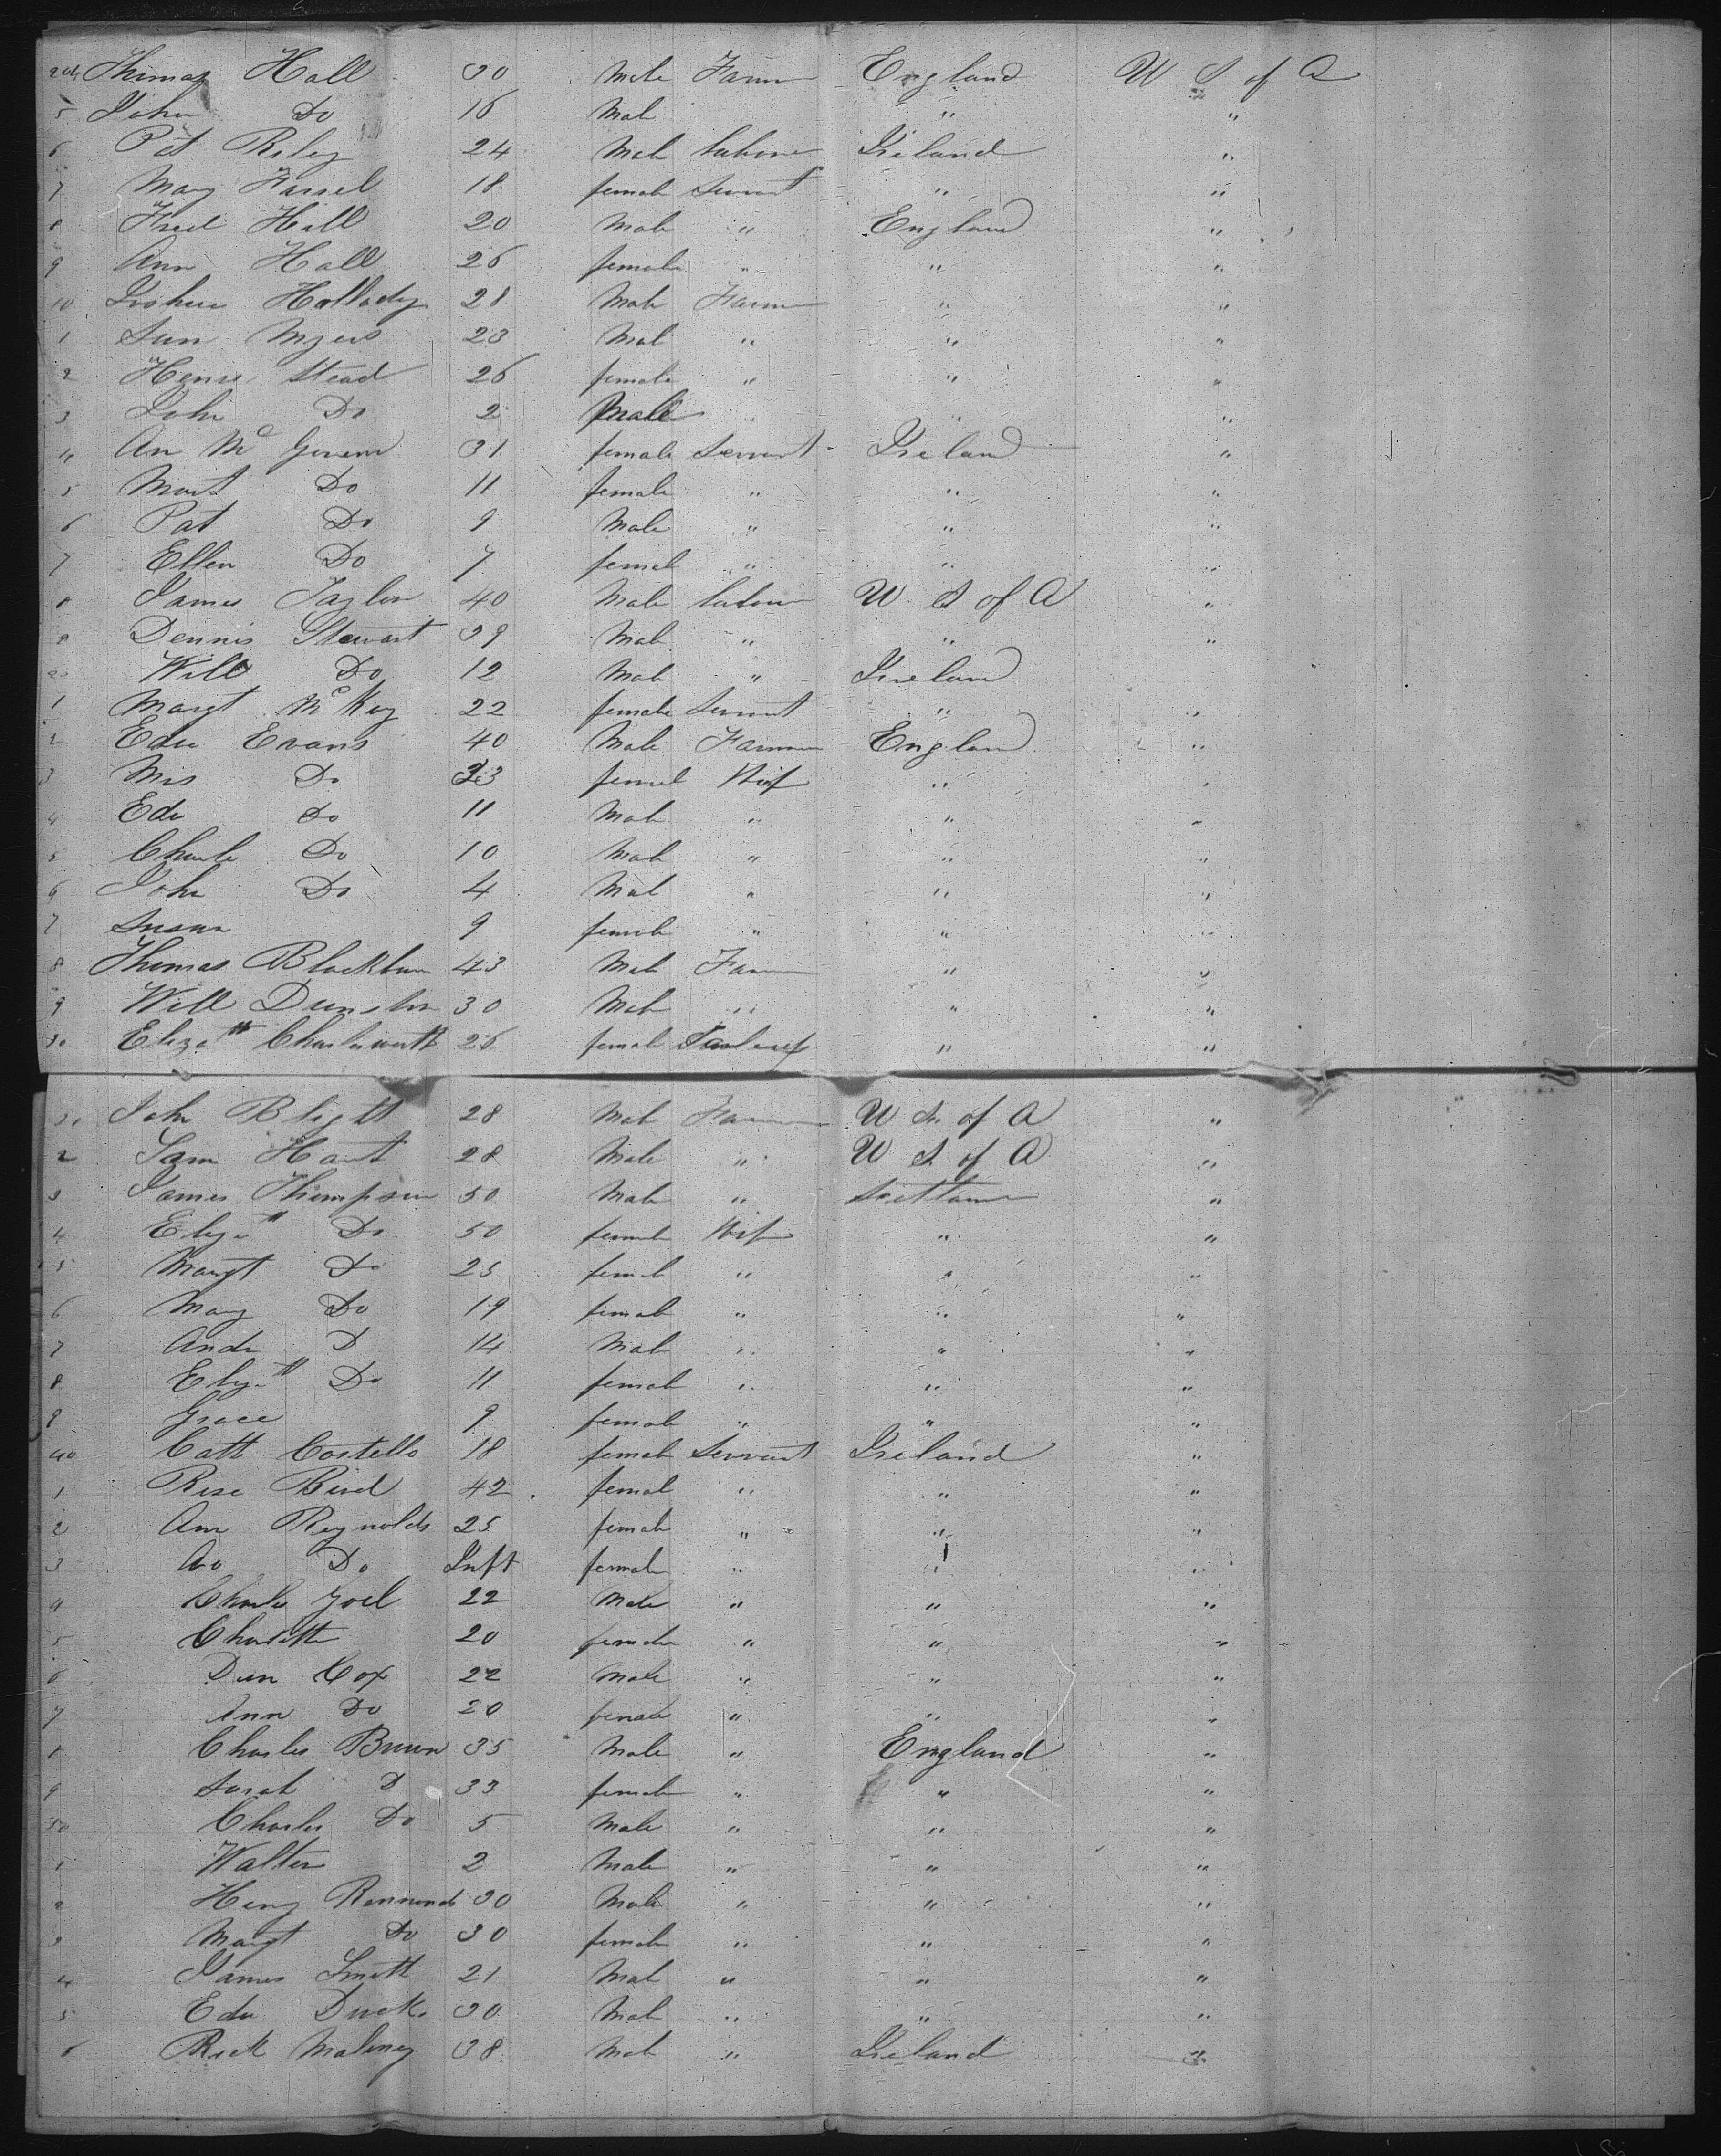 204 Thomas Hall 30 Male Farmer England U S of A
5 John Do 16 Mal " "
6 Pat Riley 24 Male Labore Ireland "
7 Mary Farrel 18 female Servant " "
8 Fred Hill 20 Male " England "
9 Ann Hall 26 female " " "
10 Halladay 28 Male Farmer " "
1 Sam Myers 23 Mal " " "
2 Stead 26 female " " "
3 John Do 2 Male " " "
4 An Mc 31 female Servant Ireland "
5 Do 11 female " " "
6 Pat Do 9 Male " " "
7 Ellen Do 7 femal " " "
8 James Taylor 40 Male Labour U S of A "
9 Dennis Stewart 39 Mal " " "
20 Will Do 12 Mal " Ireland "
1 Margt McKey 22 female Servant " "
2 Edw Evans 40 Male Farmer England "
3 Mrs Do 33 femal Wif " "
4 Edw Do 11 Male " " "
5 Charle Do 10 Male " " "
6 John Do 4 Mal " " "
7 Susan 9 female " " "
8 Thomas Blackburn 43 Male Farmer " "
9 Will Dunston 30 Male " " "
30 Elizath Charlesworth 26 female " "
31 John Bligtt 28 Male Farmer U S of A "
2 Sam Hart 28 Male " U S of A "
3 James Thompson 50 Male " "
4 Elizath Do 50 female Wif " "
5 Margt Do 25 female " " "
6 Mary Do 19 female " " "
7 Andw D 14 Male " " "
8 Elizath Do 11 female " " "
9 Grace 9 female " " "
40 Cath Costello 18 female Servant Ireland "
1 Rose Bird 42 femal " " "
2 Ann Reynolds 25 female " " "
3 Do Inft female " " "
4 Charles Joel 22 Male " " "
5 Charlotte 20 female " " "
6 Dan Cox 22 Male " " "
7 Ann Do 20 female " " "
8 Charles Brown 35 Male " England "
9 Sarah D 33 female " " "
50 Charles Do 5 Male " " "
1 Walter 2 Male " " "
2 Heny 30 Male " " "
3 Margt Do 30 female " " "
4 James Smith 21 Mal " " "
5 Edw Duck 30 Mal " " "
6 Maloney 38 Mal " Ireland "